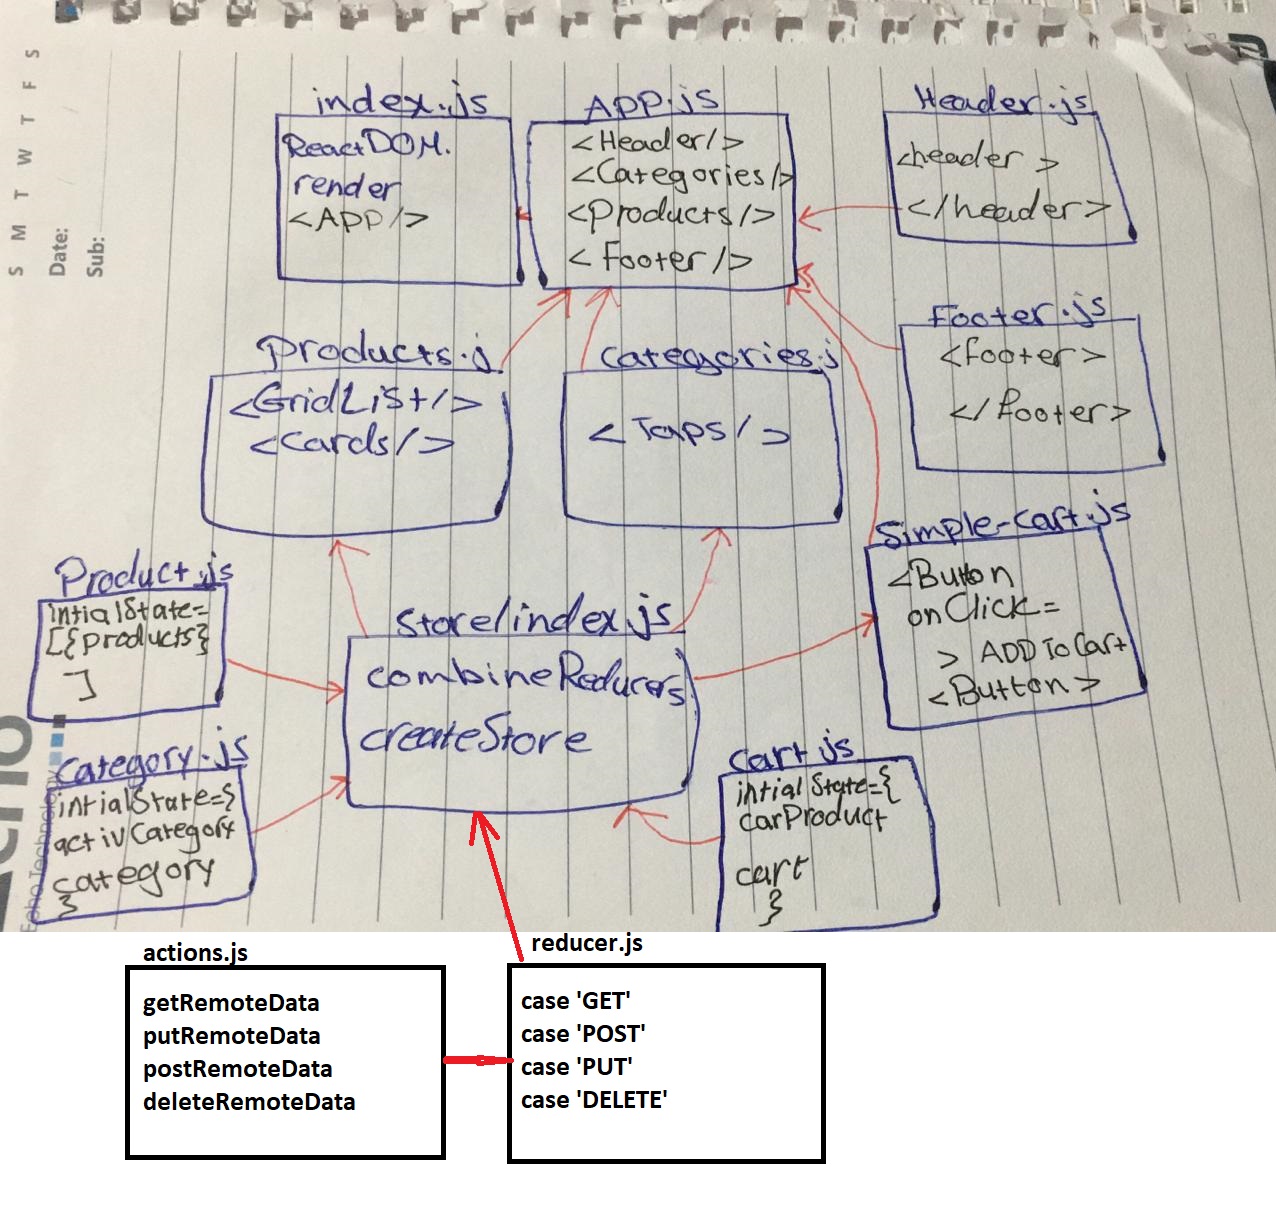 S M T W T F S
Date:
Sub:
index.js
ReactDOM.
render
<APP/>
APP.js
<Header/>
<Categories/>
<Products/>
<Footer/>
Header.js
<header>
</header>
Footer.js
<footer>
</footer>
Products.j
<GridList/>
<Cards/>
Categories.j
<Taps/>
Simple-cart.js
<Button
onClick=
> ADDToCart
<Button>
Product.js
intialState=
[{products}
]
Store/index.js
combineReducers
createStore
Category.js
intialState={
activCategory
category
}
Cart.js
intialState={
carProduct
cart
}
Echo Technology
actions.js
getRemoteData
putRemoteData
postRemoteData
deleteRemoteData
reducer.js
case 'GET'
case 'POST'
case 'PUT'
case 'DELETE'